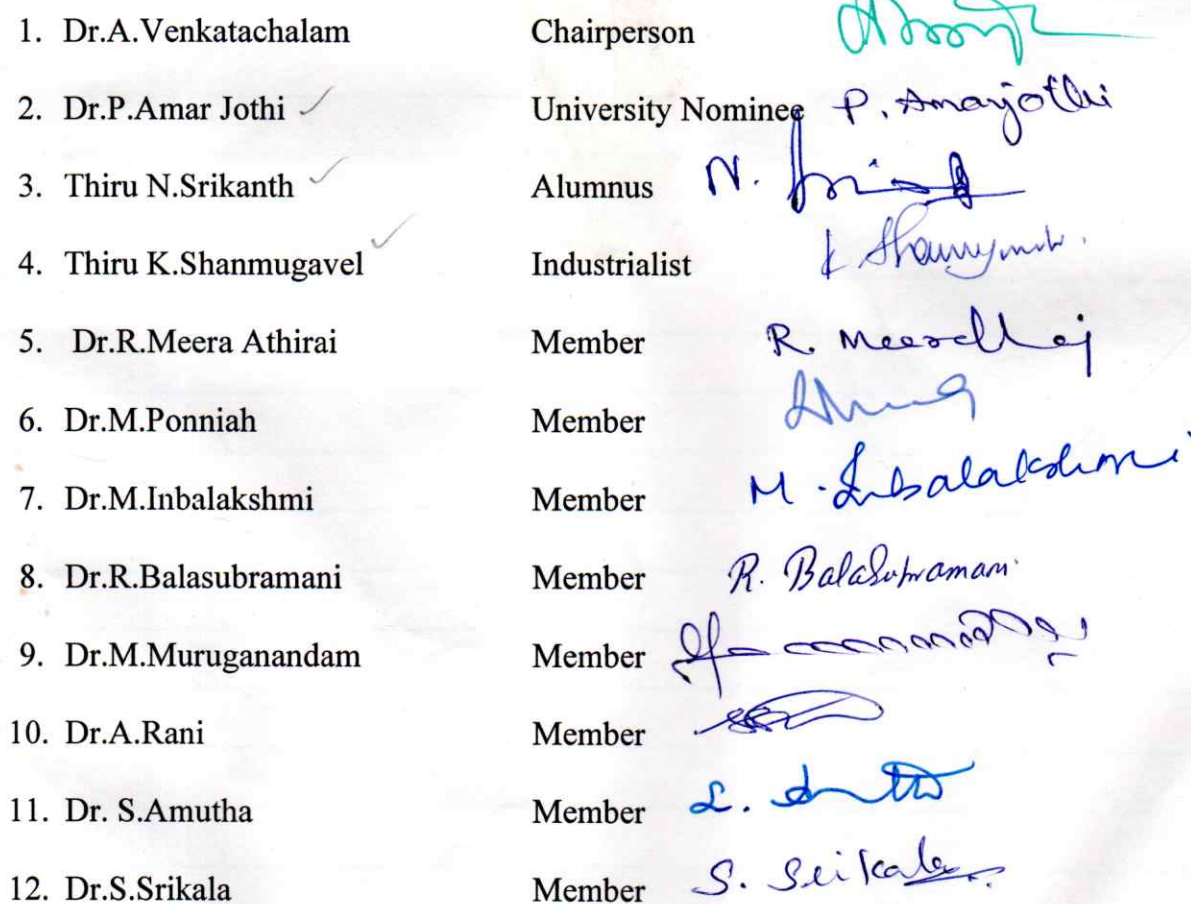 1. Dr.A.Venkatachalam Chairperson
2. Dr.P.Amar Jothi University Nominee P. Amarjothi
3. Thiru N.Srikanth Alumnus N.
4. Thiru K.Shanmugavel Industrialist K
5. Dr.R.Meera Athirai Member R.
6. Dr.M.Ponniah Member
7. Dr.M.Inbalakshmi Member M. Inbalakshmi
8. Dr.R.Balasubramani Member R. BalaSubramani
9. Dr.M.Muruganandam Member
10. Dr.A.Rani Member
11. Dr. S.Amutha Member S.
12. Dr.S.Srikala Member S. Srikala